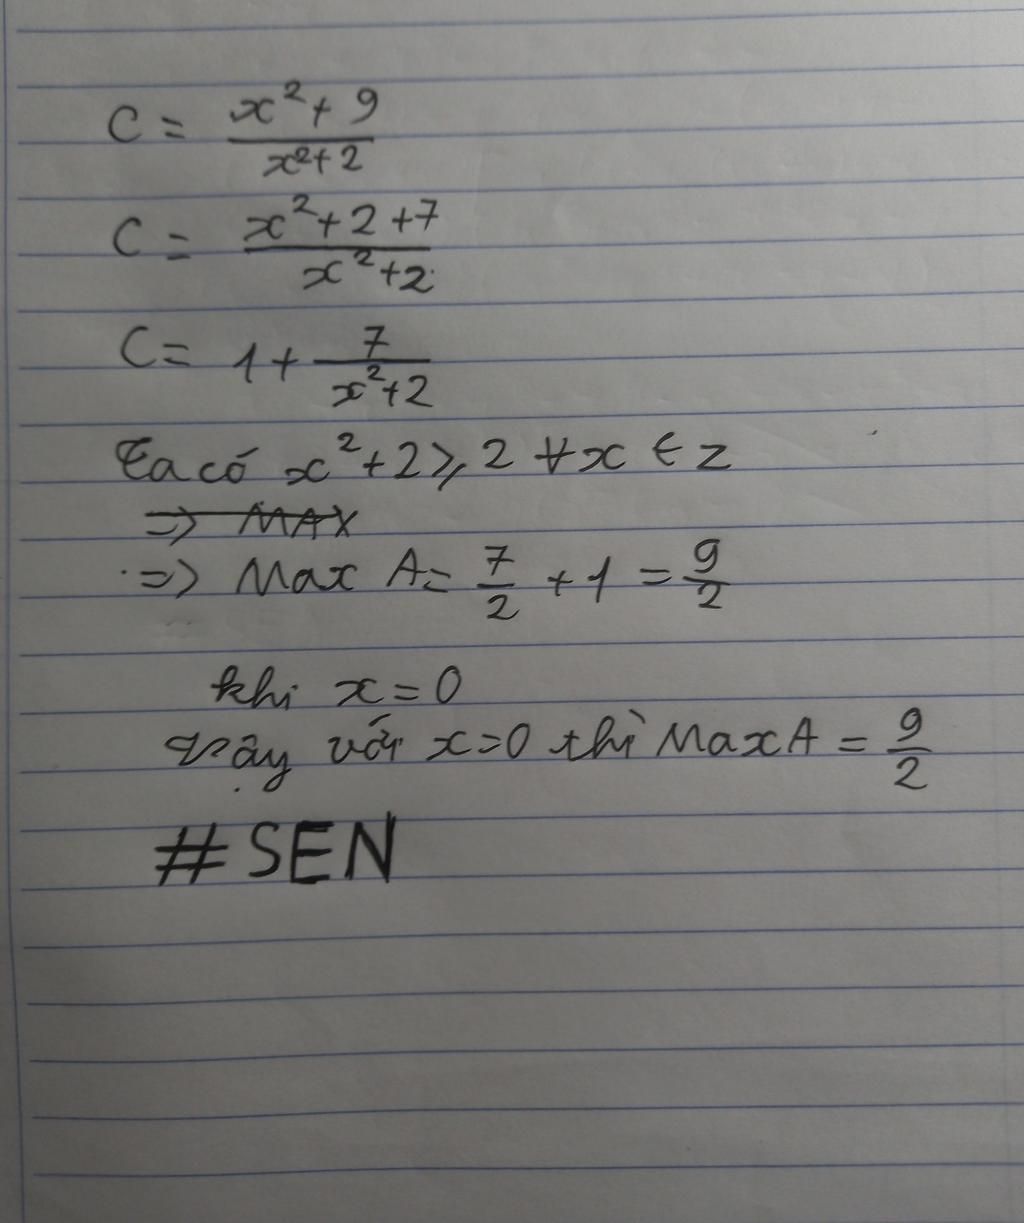 C = x²+9 / x²+2
C = x²+2+7 / x²+2
C = 1 + 7 / x²+2
Ta có x²+2 ⩾ 2 ∀x ∈ Z
=> MAX
=> Max A = 7/2 + 1 = 9/2
khi x = 0
Vậy với x=0 thì Max A = 9/2
#SEN